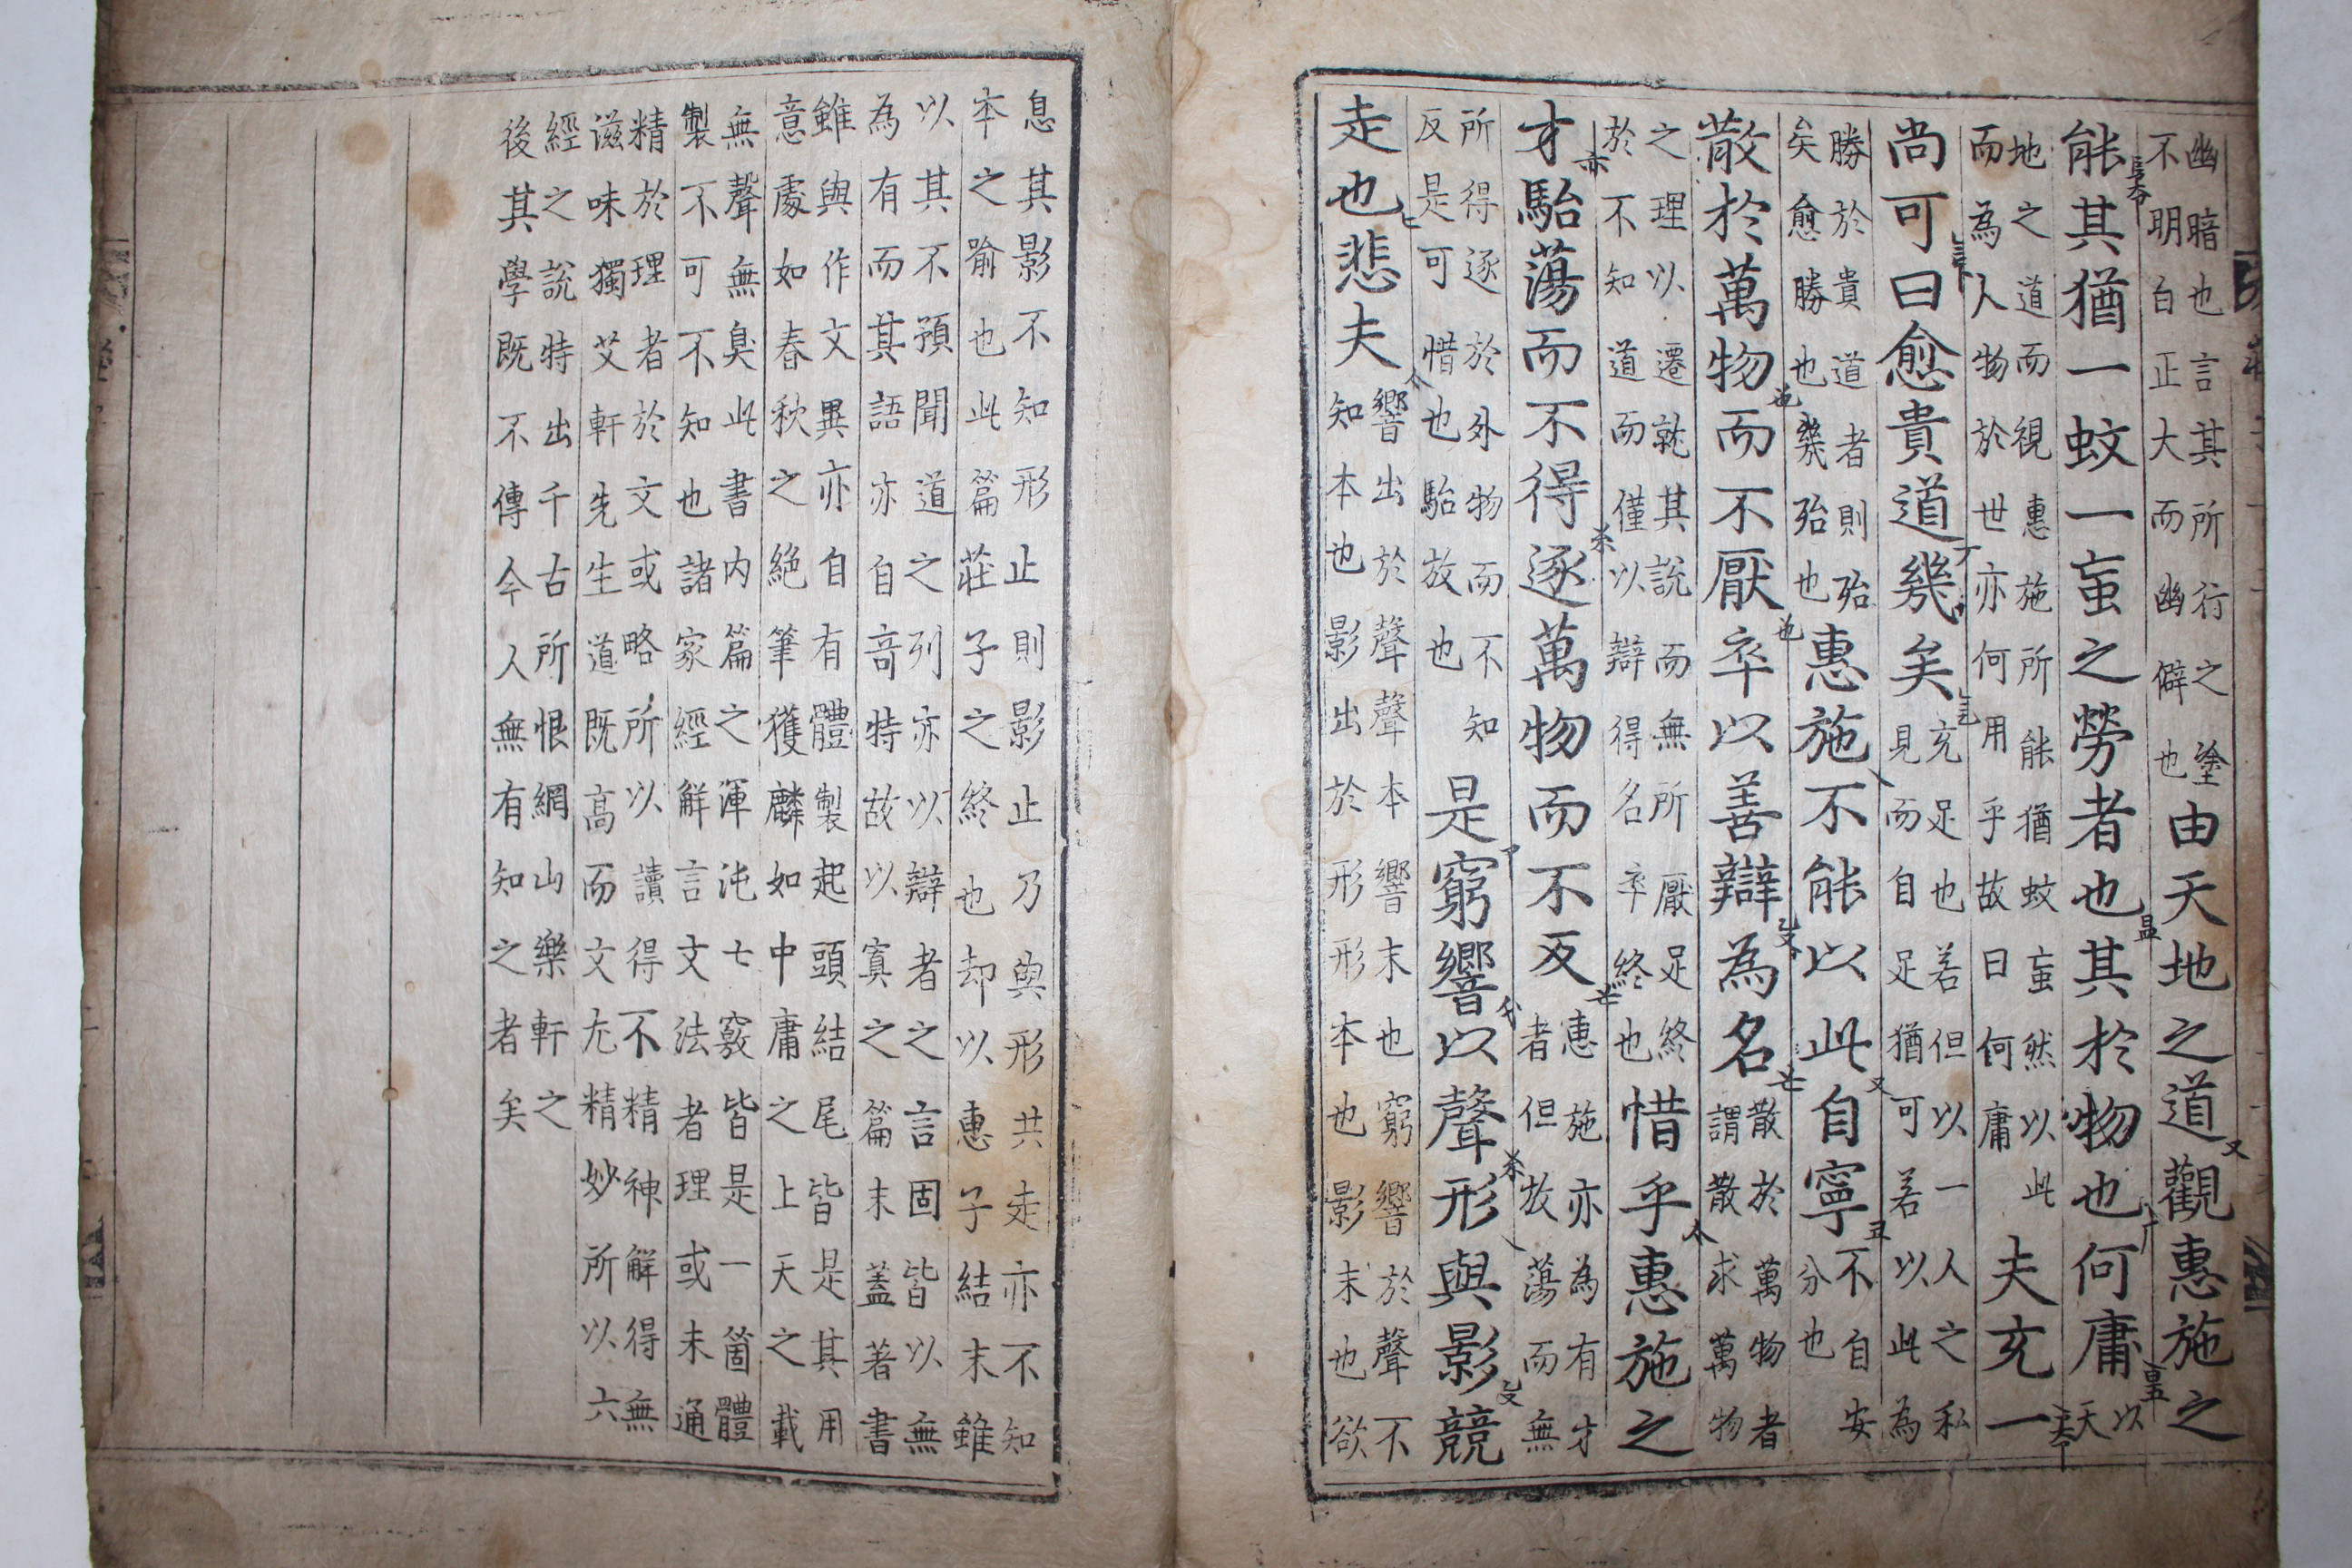 幽暗也言其所行之塗
不明白正大而幽僻也
由天地之道觀惠施之
能其猶一蚊一䖟之勞者也其於物也何庸
以
天
地之道而視惠施所能猶蚊䖟然以此
而為人物於世亦何用乎故曰何庸
夫充一
尚可曰愈貴道幾矣
充足也若但以一人之私
見而自足猶可若以此為
勝於貴道者則殆
矣愈勝也幾殆也
惠施不能以此自寧
不自安
分也
散於萬物而不厭卒以善辯為名
散於萬物者
謂散求萬物
之理以遷就其說而無所厭足終
於不知道而僅以辯得名卒終也
惜乎惠施之
才駘蕩而不得逐萬物而不反
惠施亦為有才
者但放蕩而無
所得逐於外物而不知
反是可惜也駘放也
是窮響以聲形與影競
走也悲夫
響出於聲聲本響末也窮響於聲不
知本也影出於形形本也影末也欲
息其影不知形止則影止乃與形共走亦不知
本之喻也此篇莊子之終也却以惠子結末雖
以其不預聞道之列亦以辯者之言固皆以無
為有而其語亦自奇特故以寘之篇末蓋著書
雖與作文異亦自有體製起頭結尾皆是其用
意處如春秋之絕筆獲麟如中庸之上天之載
無聲無臭此書內篇之渾沌七竅皆是一箇體
製不可不知也諸家經解言文法者理或未通
精於理者於文或略所以讀得不精神解得無
滋味獨艾軒先生道既高而文尤精妙所以六
經之說特出千古所恨網山樂軒之
後其學既不傳今人無有知之者矣